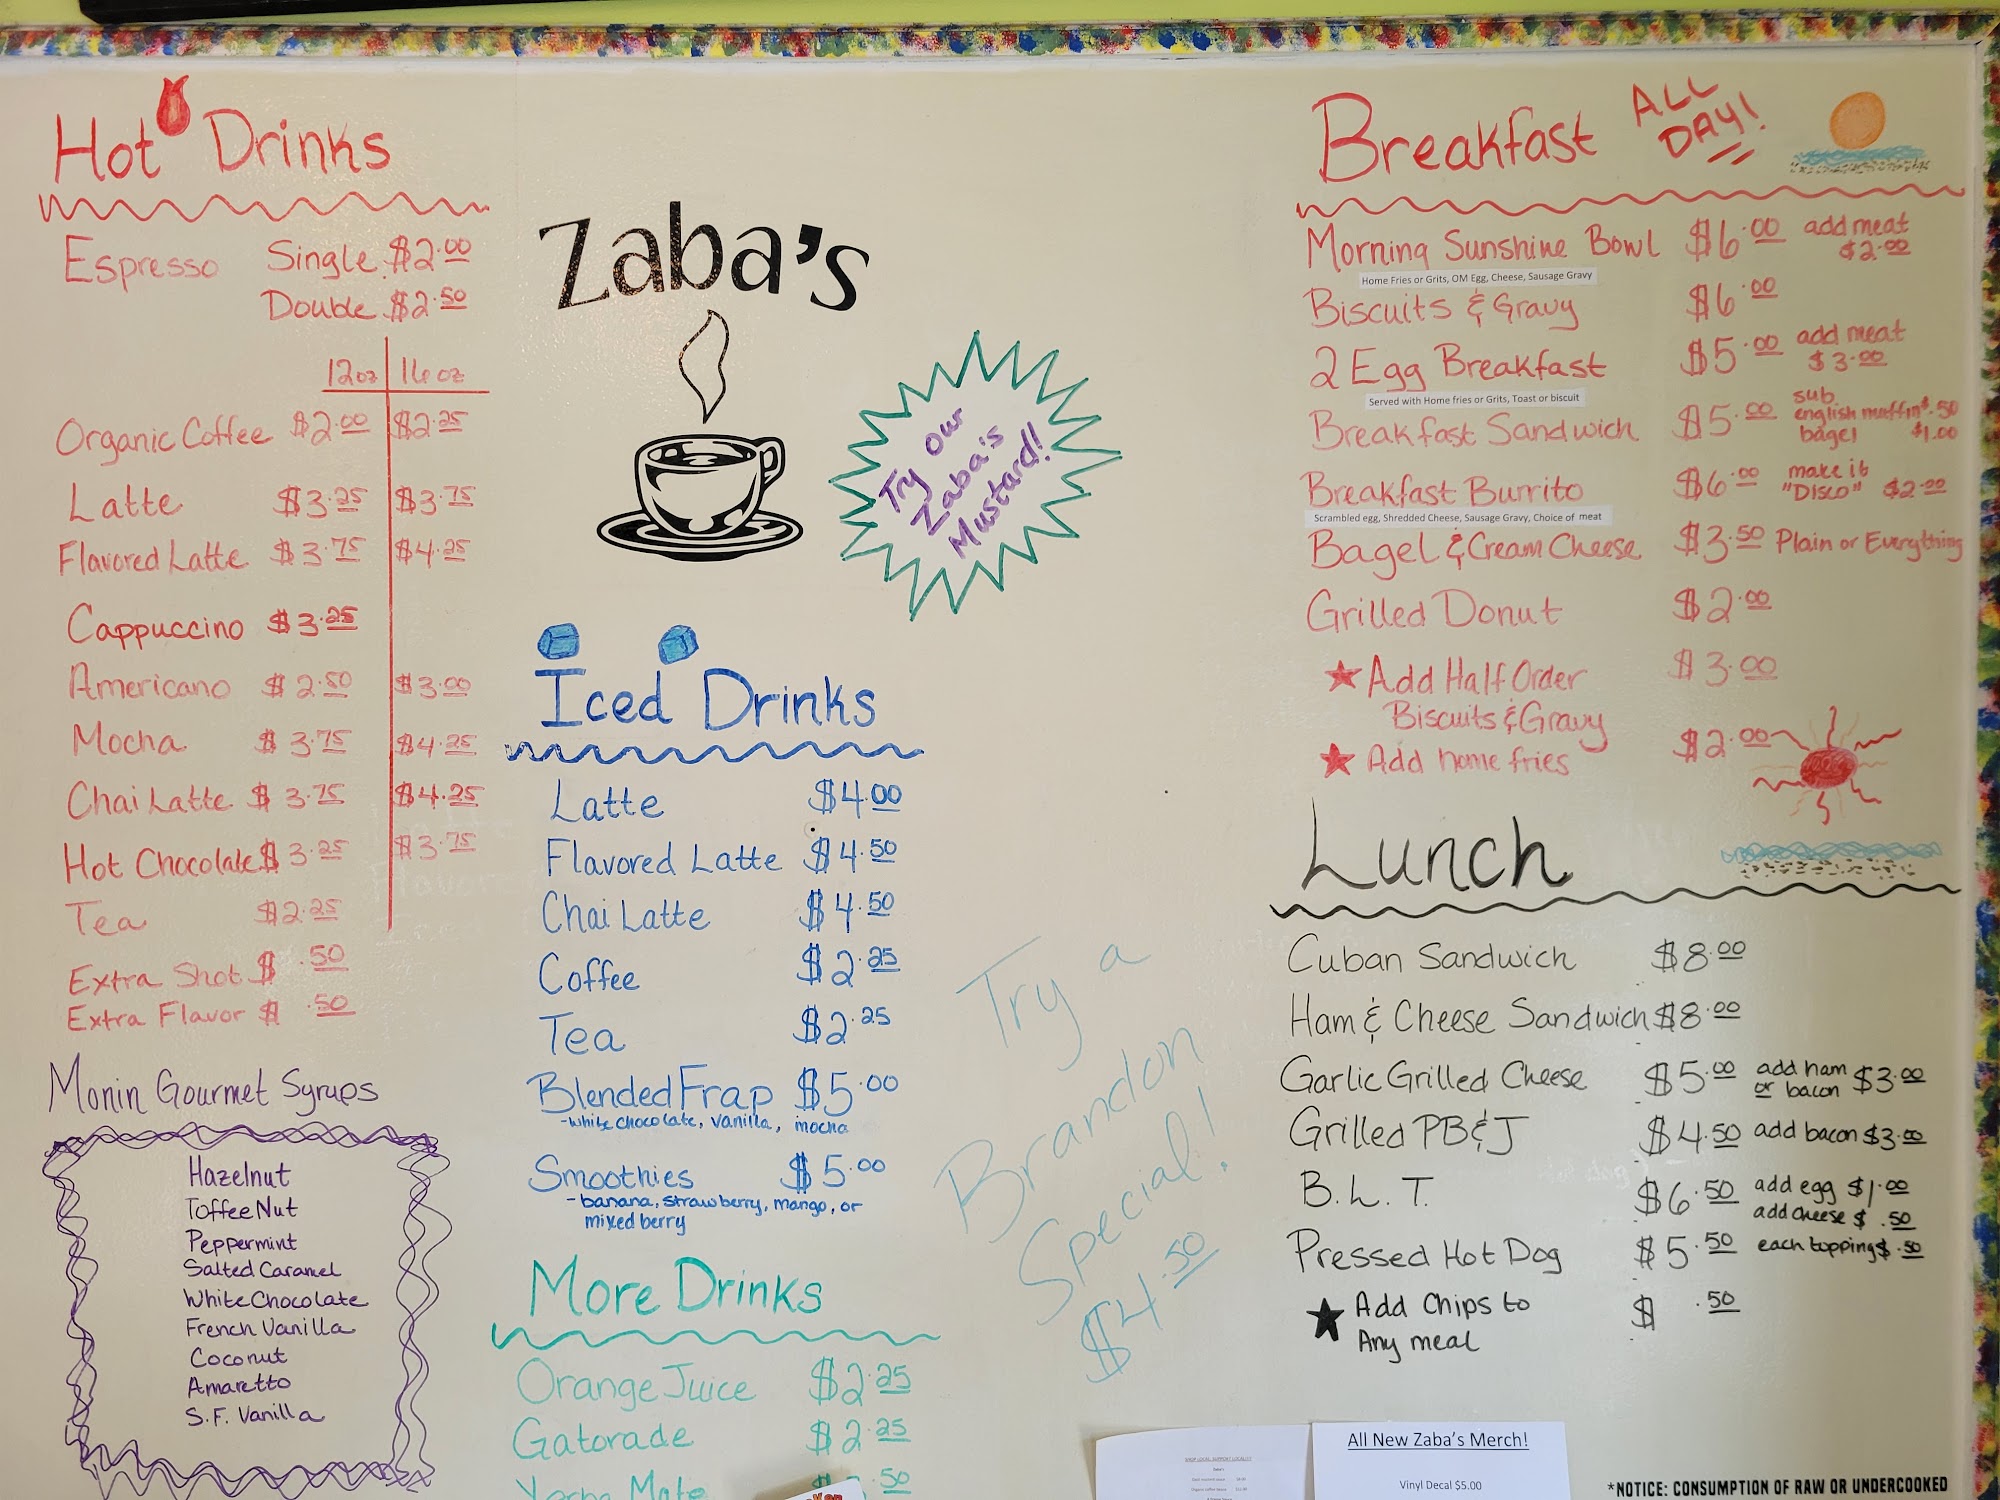 Hot Drinks
Espresso Single $2.00
Double $2.50
12oz 16oz
Organic Coffee $2.00 $2.25
Latte $3.25 $3.75
Flavored Latte $3.75 $4.25
Cappuccino $3.25
Americano $2.50 $3.00
Mocha $3.75 $4.25
Chai Latte $3.75 $4.25
Hot Chocolate $3.25 $3.75
Tea $2.25
Extra Shot $ .50
Extra Flavor $ .50
Monin Gourmet Syrups
Hazelnut
Toffee Nut
Peppermint
Salted Caramel
White Chocolate
French Vanilla
Coconut
Amaretto
S.F. Vanilla
Zaba's
Try our
Zaba's
Mustard!
Iced Drinks
Latte $4.00
Flavored Latte $4.50
Chai Latte $4.50
Coffee $2.25
Tea $2.25
Blended Frap $5.00
-white chocolate, vanilla, mocha
Smoothies $5.00
-banana, strawberry, mango, or
mixed berry
More Drinks
Orange Juice $2.25
Gatorade $2.25
Yerba Mate .50
Try a
Brandon
Special!
$4.50
Breakfast ALL
DAY!
Morning Sunshine Bowl $6.00 add meat
$2.00
Home Fries or Grits, OM Egg, Cheese, Sausage Gravy
Biscuits & Gravy $6.00
2 Egg Breakfast $5.00 add meat
$3.00
Served with Home fries or Grits, Toast or biscuit
Breakfast Sandwich $5.00 sub
english muffin $.50
bagel $1.00
Breakfast Burrito $6.00 make it
"DISCO" $2.00
Scrambled egg, Shredded Cheese, Sausage Gravy, Choice of meat
Bagel & Cream Cheese $3.50 Plain or Everything
Grilled Donut $2.00
Add Half Order $3.00
Biscuits & Gravy
Add home fries $2.00
Lunch
Cuban Sandwich $8.00
Ham & Cheese Sandwich $8.00
Garlic Grilled Cheese $5.00 add ham
or bacon $3.00
Grilled PB&J $4.50 add bacon $3.00
B.L.T. $6.50 add egg $1.00
add cheese $ .50
Pressed Hot Dog $5.50 each topping $.50
Add Chips to $ .50
Any meal
All New Zaba's Merch!
Vinyl Decal $5.00
*NOTICE: CONSUMPTION OF RAW OR UNDERCOOKED